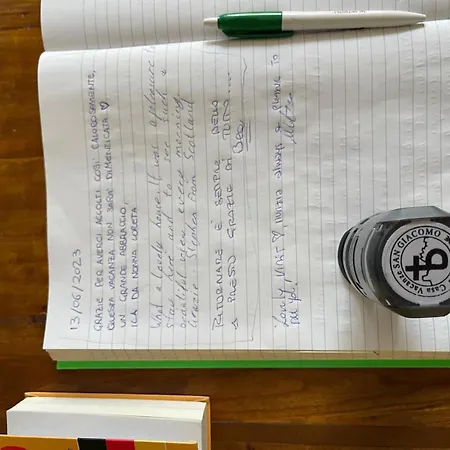 13/06/2023
GRAZIE PER AVERCI ACCOLTI COSÌ CALOROSAMENTE,
QUESTA VACANZA NON SARÀ DIMENTICATA ♡
UN GRANDE ABBRACCIO,
ILA DA NONNA LORETA
What a lovely house. It was a pleasure to
stay here and to see such a
beautiful sight every morning
Grazie. Stephen from Scotland
RITORNARE È SEMPRE BELLO
A PRESTO GRAZIE DI TUTTO
Lovely
Casa Vacanze SAN GIACOMO